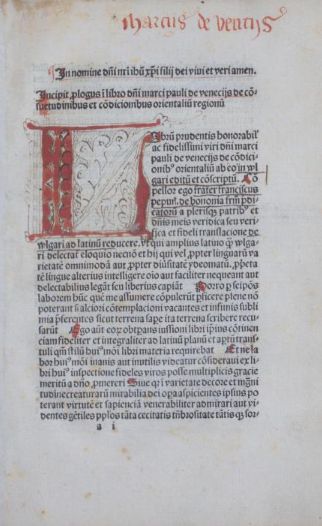 Marcus de venetijs
In nomine dñi nr̃i ihũ xp̃i filij dei viui et veri amen.
Incipit ꝓlogus ĩ libro dñi marci pauli de venecijs de cõ-
suetudinibus et cõdicionibus orientaliũ regionũ
Librũ prudentis honorabił
ac fidelissimi viri dñi marci
pauli de venecijs de cõdici-
onib⁹ orientaliũ ab eo in wl
gari editũ et cõscriptũ Cõ
pellor ego frater franciscus
pepuɼ. de bononia frm̃ p̃di
catorũ a plerisqꝫ patrib⁹ et
dñis meis veridica seu veri-
fica et fideli translacione de
wlgari ad latinũ reducere. vt qui amplius latino qꝫ wlga-
ri delectãt eloquio necnõ et hij qui vel ꝓpter linguarũ va
rietatẽ omnimodã aut ꝓpter diũsitatẽ ydeomatũ. ꝓp̃eta
tẽ lingue alterius intelligere oĩo aut faciliter nequeunt aut
delectabilius legãt seu liberius capiãt Porro ꝑ seip̃os
laborem hũc quẽ me assumere cõpulerũt ꝑficere plene nõ
poterant Sed alciori cõtemplacioni vacantes et infimis subli
mia p̃ferentes sicut terrena sape ita terrena scribere recu-
sarũt Ego aũt eoꝝ obtẽpãs iussioni libri ip̃ius cõtinen
ciam fideliter et integraliter ad latinũ planũ et aptũ trans-
tuli qm̃ stilũ hui⁹mõi libri materia requirebat Et ne la
bor hui⁹mõi inanis aut inutilis videatur cõsideraui ex li-
bri hui⁹ inspectione fideles viros posse multiplicis gracie
meritũ a dño ꝓmereri Siue qꝛ ĩ varietate decore et mg̃ni
tudĩe creaturarũ mirabilia dei opa aspicientes ipsius po
terunt virtutẽ et sapienciã venerabiliter admirari aut vi-
dentes gẽtiles pp̃los tãta cecitatis tñbrositate tãtisqꝫ sor-
a i